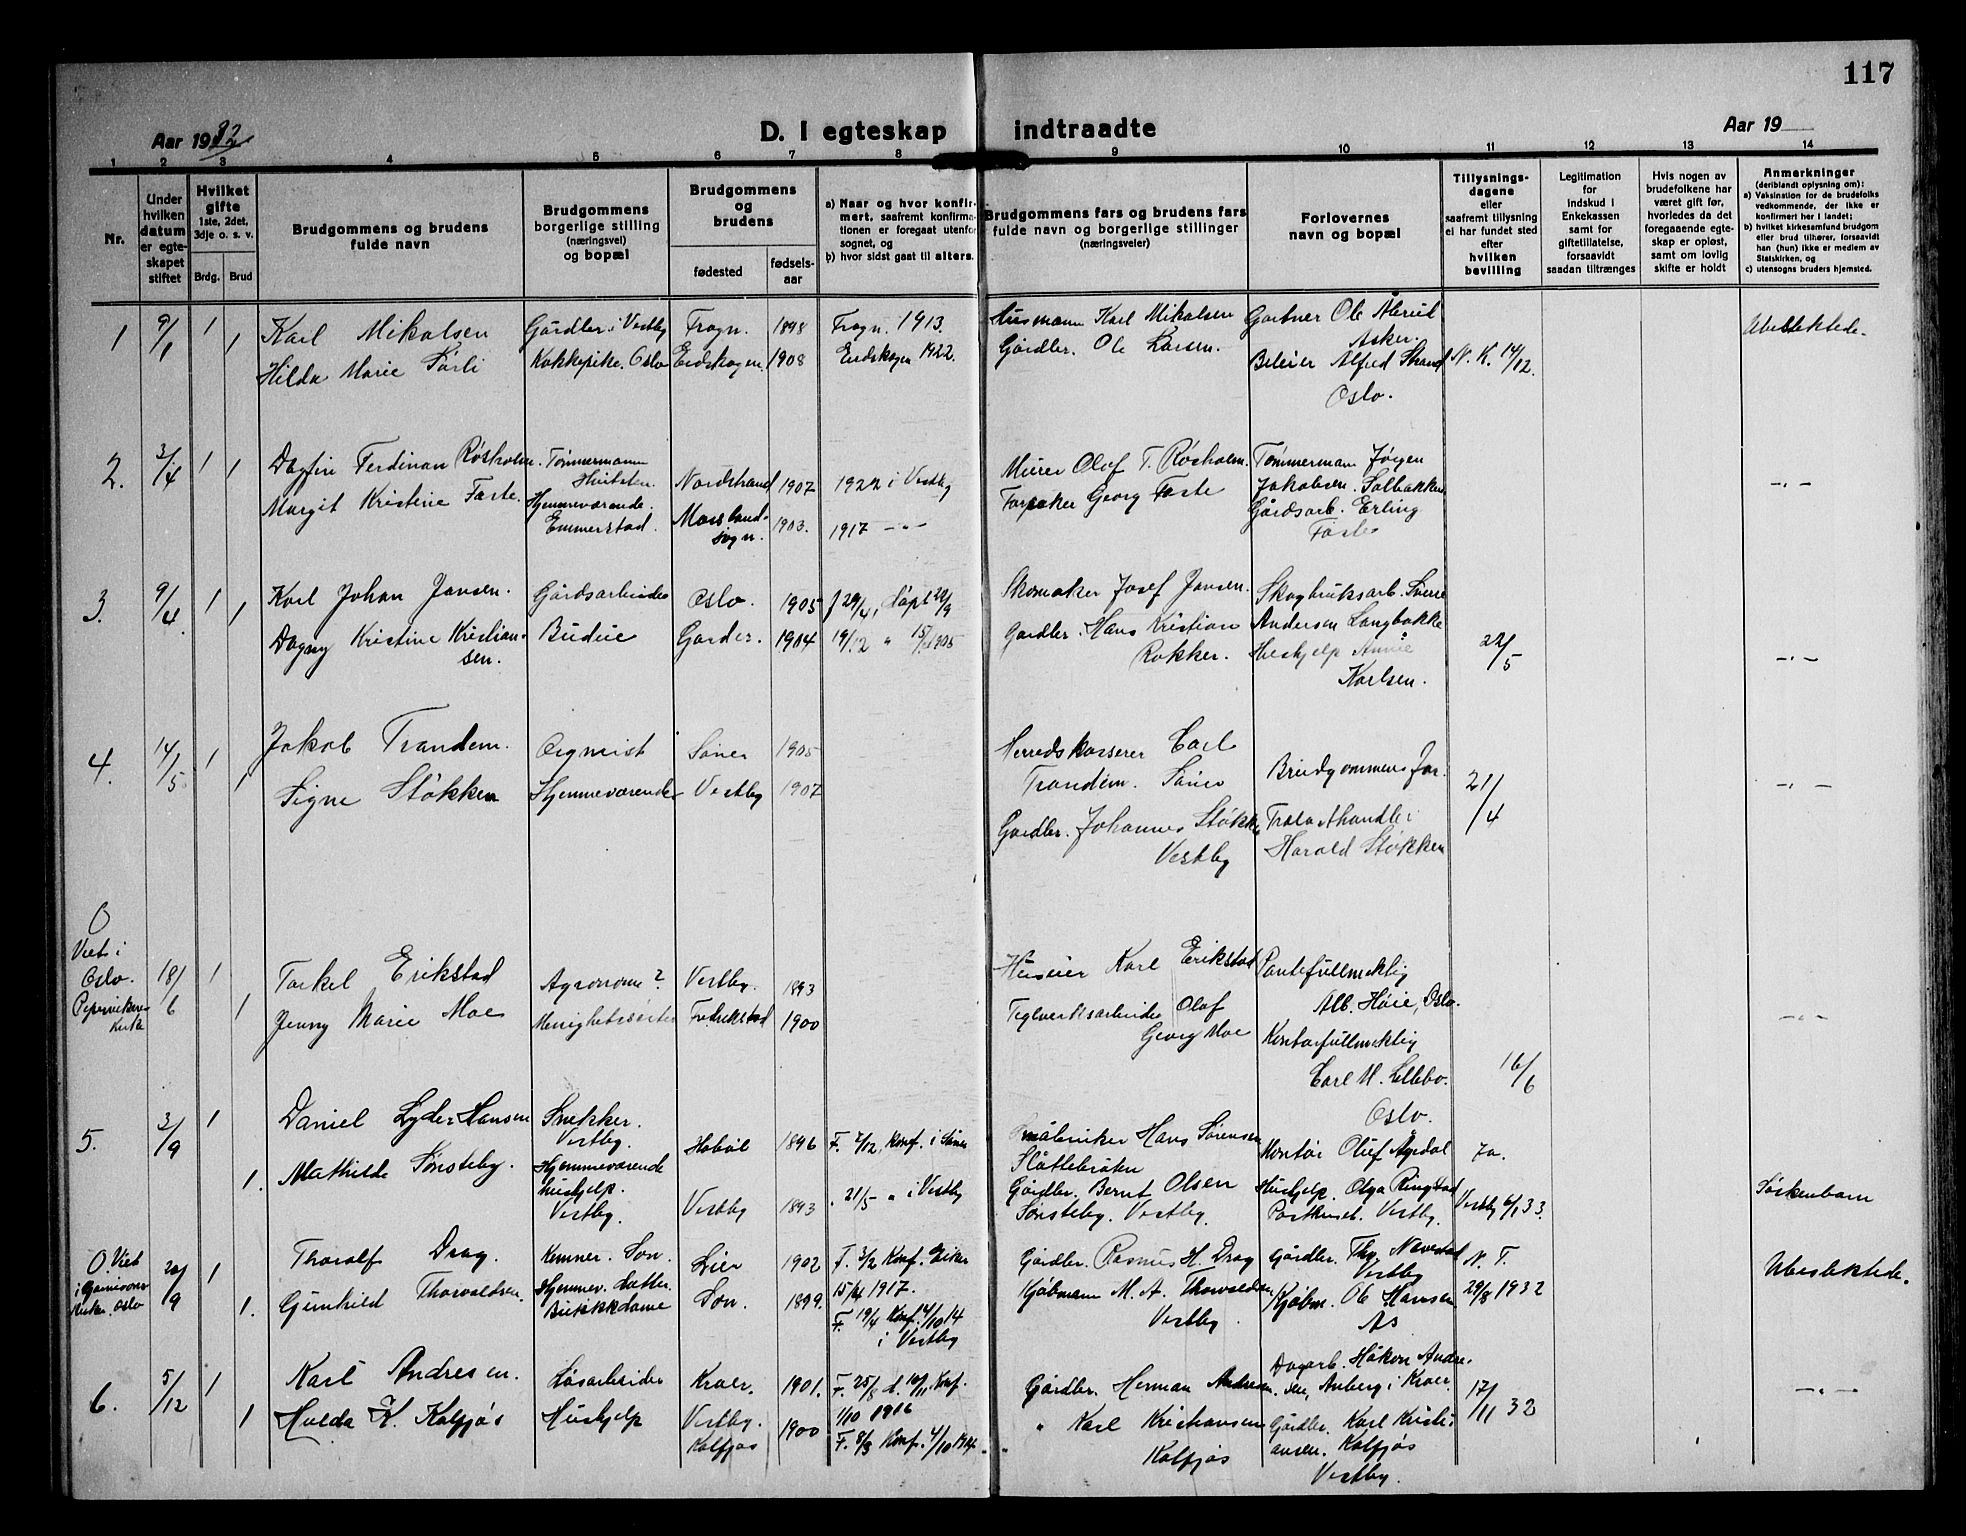 117
Aar 1932
D. I egteskap indtraadte
Aar 19
1 2 3 4 5 6 7 8 9 10 11 12 13 14
Nr.
Under hvilken datum er egteskapet stiftet
Hvilket gifte
1ste, 2det, 3dje o. s. v.
Brdg. Brud
Brudgommens og brudens fulde navn
Brudgommens borgerlige stilling (næringsvei) og bopæl
Brudgommens og brudens
fødested
fødselsaar
a) Naar og hvor konfirmert, saafremt konfirmationen er foregaat utenfor sognet, og
b) hvor sidst gaat til alters.
Brudgommens fars og brudens fars fulde navn og borgerlige stillinger (næringsveier)
Forlovernes navn og bopæl
Tillysningsdagene eller saafremt tillysning ei har fundet sted efter hvilken bevilling
Legitimation for indskud i Enkekassen samt for giftetillatelse, forsaavidt saadan tiltrænges
Hvis nogen av brudefolkene har været gift før, hvorledes da det foregaaende egteskap er opløst, samt om lovlig skifte er holdt
Anmerkninger
(deriblandt oplysning om):
a) Vaksination for de brudefolks vedkommende, der ikke er konfirmert her i landet;
b) hvilket kirkesamfund brudgom eller brud tilhører, forsaavidt han (hun) ikke er medlem av Statskirken, og
c) utensogns bruders hjemsted.
1 9/1 1 Karl Mikalsen Gårdbr. i Vestby Frogn. 1898 Frogn. 1913. Husmann Karl Mikalsen Gartner Ole Åbrud Asker. Ubeslektede.
1 Hilda Marie Sørli Kokkepike. Oslo Eidskogen. 1908 Eidskogen 1922. Gårdbr. Ole Larsen. Bileier Alfred Strand Oslo. N. K. 14/12.
2. 3/4 1 Dagfin Ferdinan Røsholm. Tømmermann Hvitsten. Nordstrand 1907 1922 i Vestby Murer Olaf T. Røsholm. Tømmerman Jørgen Jakobsen. Solbakken -"-
1 Margit Kristine Faste. Hjemmeværende. Emmerstad. Moss landsogn. 1903. 1917 -"- Forpakter Georg Faste Gårdsarb. Erling Faste
3. 9/4. 1 Karl Johan Jansen. Gårdsarbeider Oslo. 1905 f 29/4, Døpt 24/9 Skomaker Josef Jansen. Skogbruksarb. Sverre Andersen Langbakke
1 Dagny Kristine Kristiansen. Budeie Garder. 1904 19/12 " 15/1 1905 Gårdbr. Hans Kristian Rokker. Hushjelp Annie Karlsen. 22/5 -"-
4. 14/5 1 Jakob Trandem. Organist Såner 1905 Herredskasserer Carl Trandem. Såner Brudgommens far. 21/4 -"-
1 Signe Støkken Hjemmeværende Vestby 1907 Gårdbr. Johannes Støkken Vestby Trelasthandler Harald Støkken
0 Viet i Oslo. Pipervikens Kirke 18/6 1 Torkel Erikstad Agronom? Vestby. 1893 Huseier Karl Erikstad Pantefullmektig Alb. Høie, Oslo.
1 Jenny Marie Moe Menighetssøster Fredrikstad 1900 Teglverksarbeider Olaf Georg Moe Kontorfullmektig Carl M. Lillebo. Oslo. 16/6 -"-
5. 3/9 1 Daniel Lyder Hansen Snekker. Vestby. Hobøl 1896 F. 7/12, Konf. i Såner Småbruker Hans Sørensen Slåttebråten Kontor. Oluf Ågedal 7a.
1. Mathilde Sønsteby. Hjemmeværende hushjelp. Vestby. Vestby 1893 " 21/5 " i Vestby Gårdbr. Bernt Olsen Sønsteby. Vestby. Hushjelp. Olga Ringstad Posthuset. Vestby. Vestby 6/1 33. Søskenbarn
0. Viet i Garnisonskirke. Oslo 20/9 1 Thoralf Drag. Kemner. Son. Lier 1902 F. 3/2 Konf. Eiker 15/4 1917. Gårdbr. Rasmus H. Drag Gårdbr. Thv. Navestad Vestby N. T. 29/8 1932 Ubeslektede.
1. Gunhild Thorvaldsen. Hjemmev. datter. Butikkdame Son. 1899. F. 19/4 Konf. 4/10 14 i Vestby Kjøbmann M. A. Thorvaldsen Vestby. Kjøbm. Ole Hansen As
6. 5/12 1 Karl Andresen Løsarbeider Kroer. 1901. F. 25/8 d. 10/11, Konf. 1/10 1916 Gårdbr. Herman Andresen Dagarb. Håkon Andresen, Auberg i Kroer. 17/11 32 -"-
1 Hulda K. Kolfjøs Hushjelp Vestby. Kolfjøs 1900 F. 8/8 Konf. 4/10 1914. " Karl Kristiansen Kolfjøs Gårdbr. Karl Kristiansen. Kolfjøs Vestby.